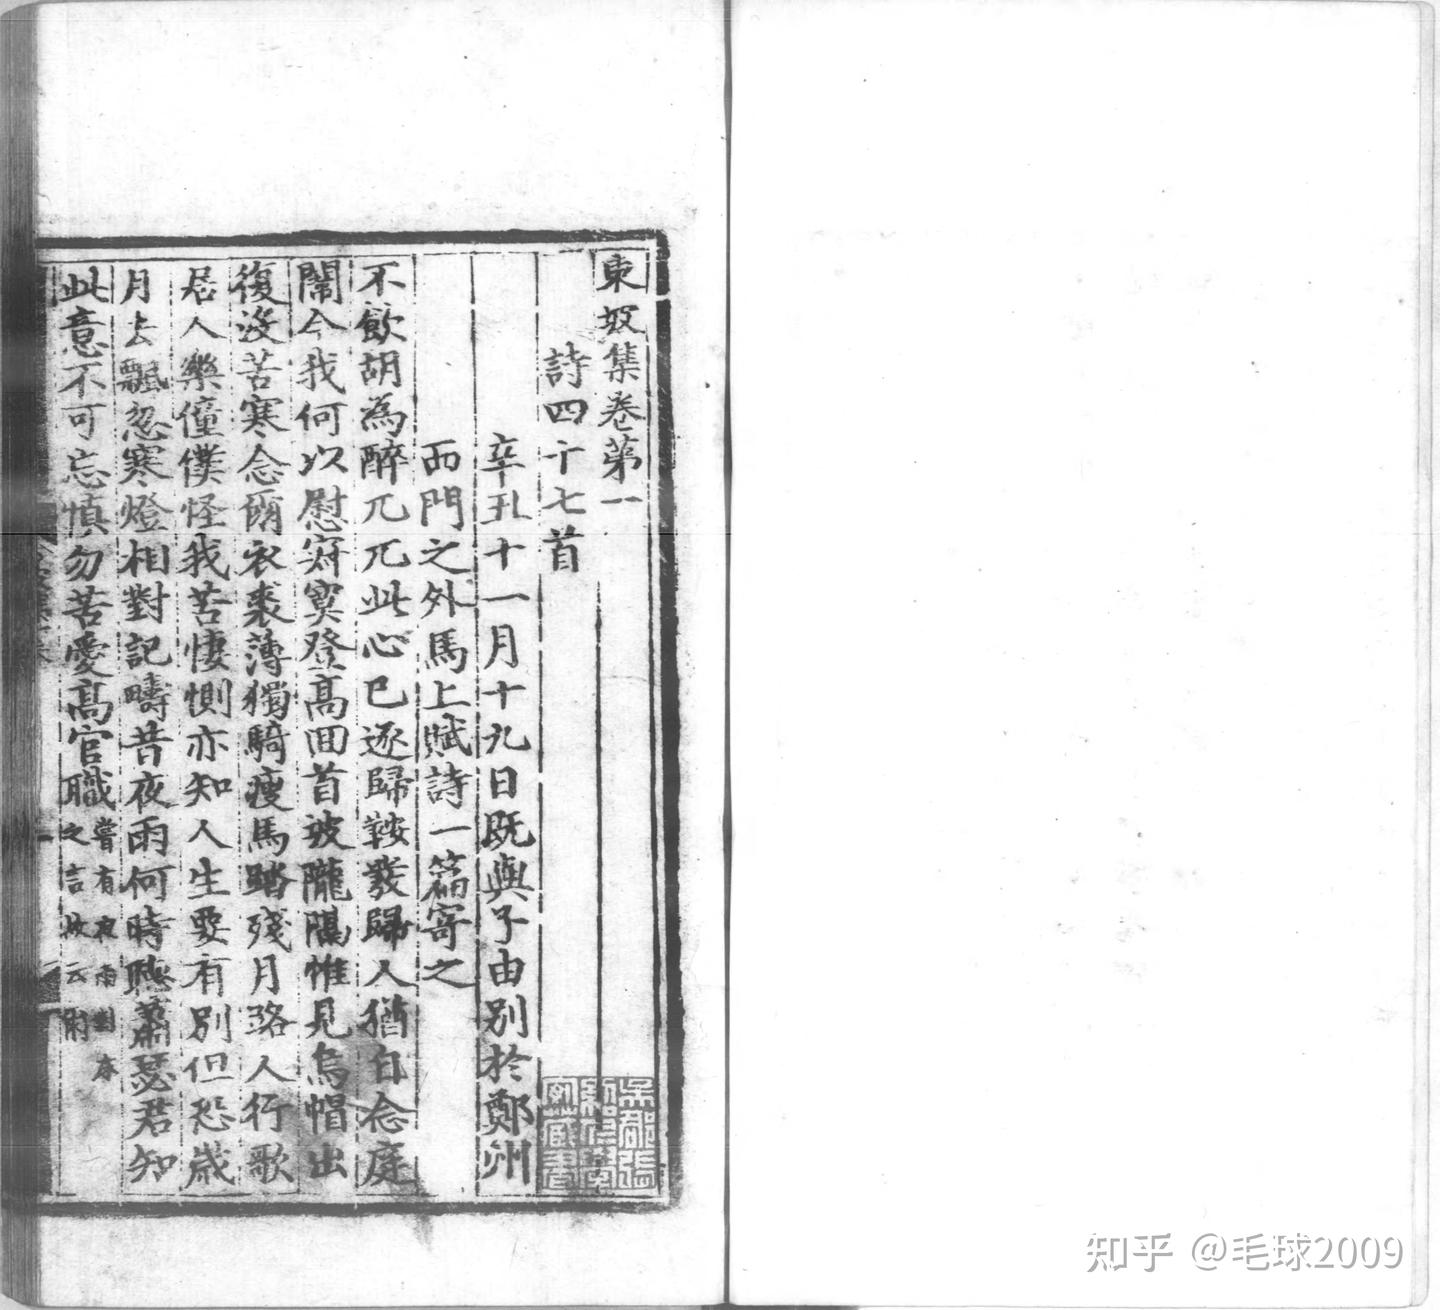 東坡集卷第一
詩四十七首
辛丑十一月十九日既與子由別於鄭州
西門之外馬上賦詩一篇寄之
不飲胡為醉兀兀此心已逐歸鞍發歸人猶自念庭
闈今我何以慰寂寞登高回首坡隴隔惟見烏帽出
復沒苦寒念爾衣裘薄獨騎瘦馬踏殘月路人行歌
居人樂僮僕怪我苦悽惻亦知人生要有別但恐歲
月去飄忽寒燈相對記疇昔夜雨何時聽蕭瑟君知
此意不可忘慎勿苦愛高官職嘗有夜雨對床
之言故云爾
知乎 @毛球2009